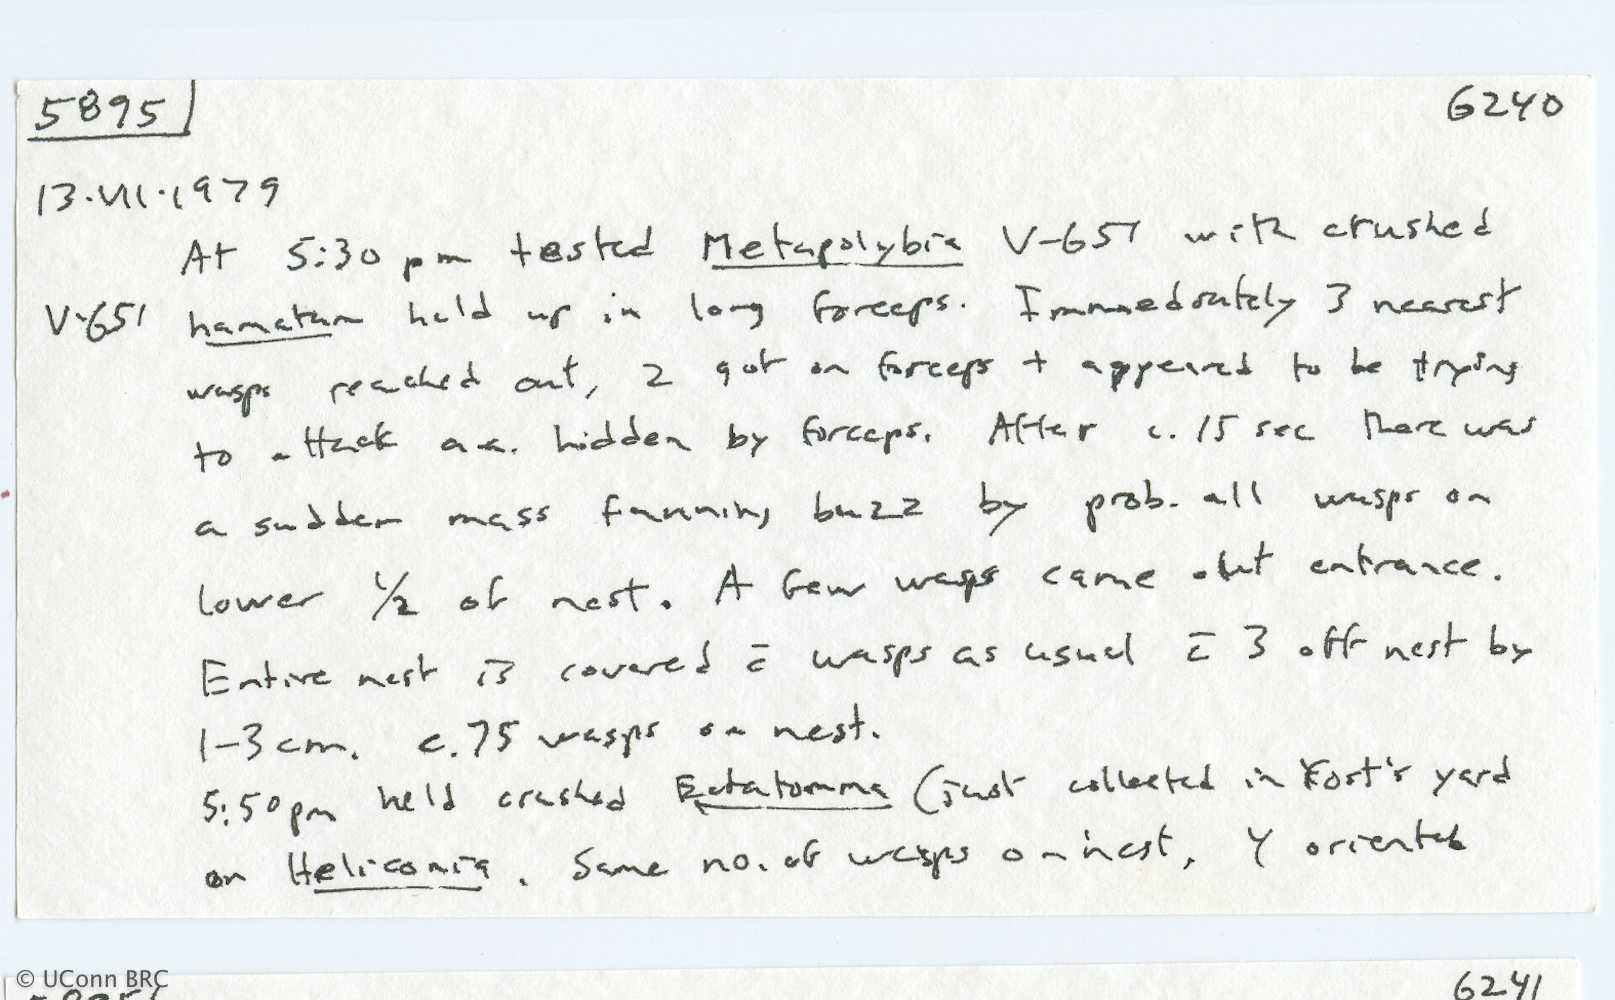 5895
6240
13.VII.1979
At 5:30 pm tested Metapolybia V-651 with crushed
V-651 hamatum held up in long forceps. Immediately 3 nearest
wasps reached out, 2 got on forceps + appeared to be trying
to attack a.a. hidden by forceps. After c. 15 sec there was
a sudden mass fanning buzz by prob. all wasps on
lower 1/2 of nest. A few wasps came out entrance.
Entire nest is covered c̄ wasps as usual c̄ 3 off nest by
1-3 cm. c. 75 wasps on nest.
5:50pm held crushed Ectatomma (just collected in Yost's yard
on Heliconia. Same no. of wasps on nest, 4 oriented
© UConn BRC
6241